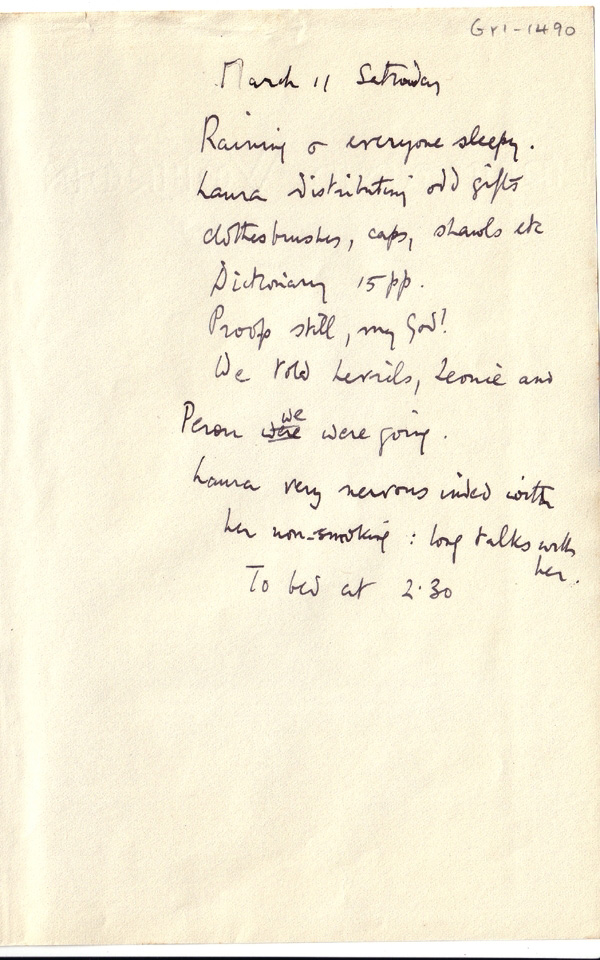 Gr1-1490
March 11 Saturday
Raining & everyone sleepy.
Laura distributing odd gifts
clothesbrushes, caps, shawls etc
Dictionary 15 pp.
Proofs still, my God!
We told Leonie and
we
Peron were were going.
Laura very nervous indeed with
her non-smoking : long talks with
her.
To bed at 2.30